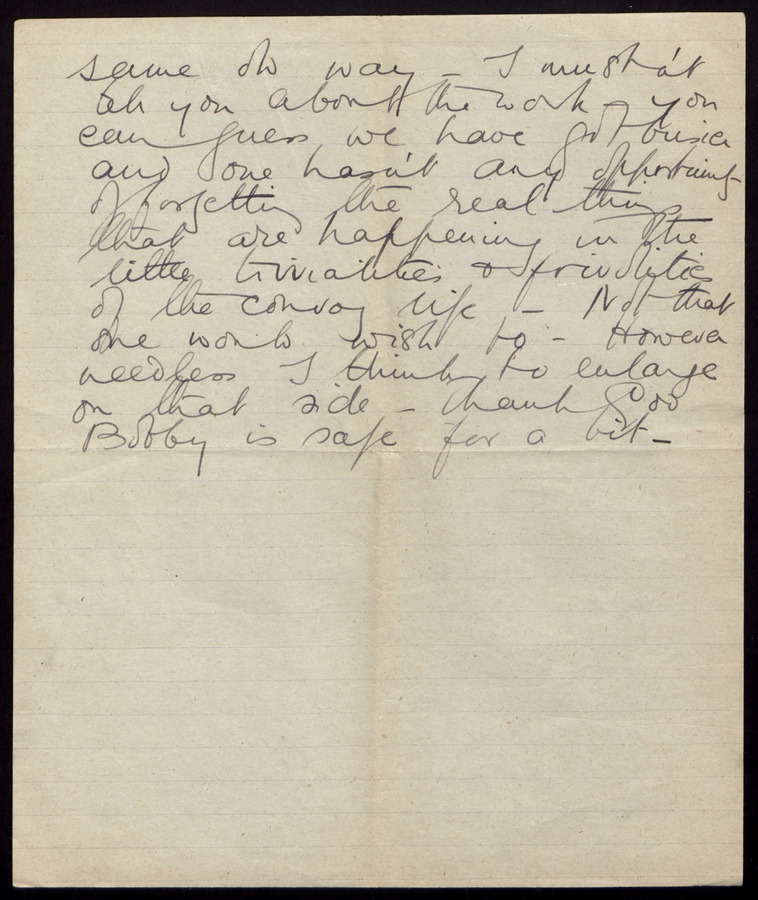 same old way – I mustn't
tell you about the work – you
can guess we have got busier
and one hasn't any opportunity
of forgetting the real things
that are happening in the
little trivialities & frivolities
of the convoy life – Not that
one would wish to – However
needless I think to enlarge
on that side – thank God
Bobby is safe for a bit –